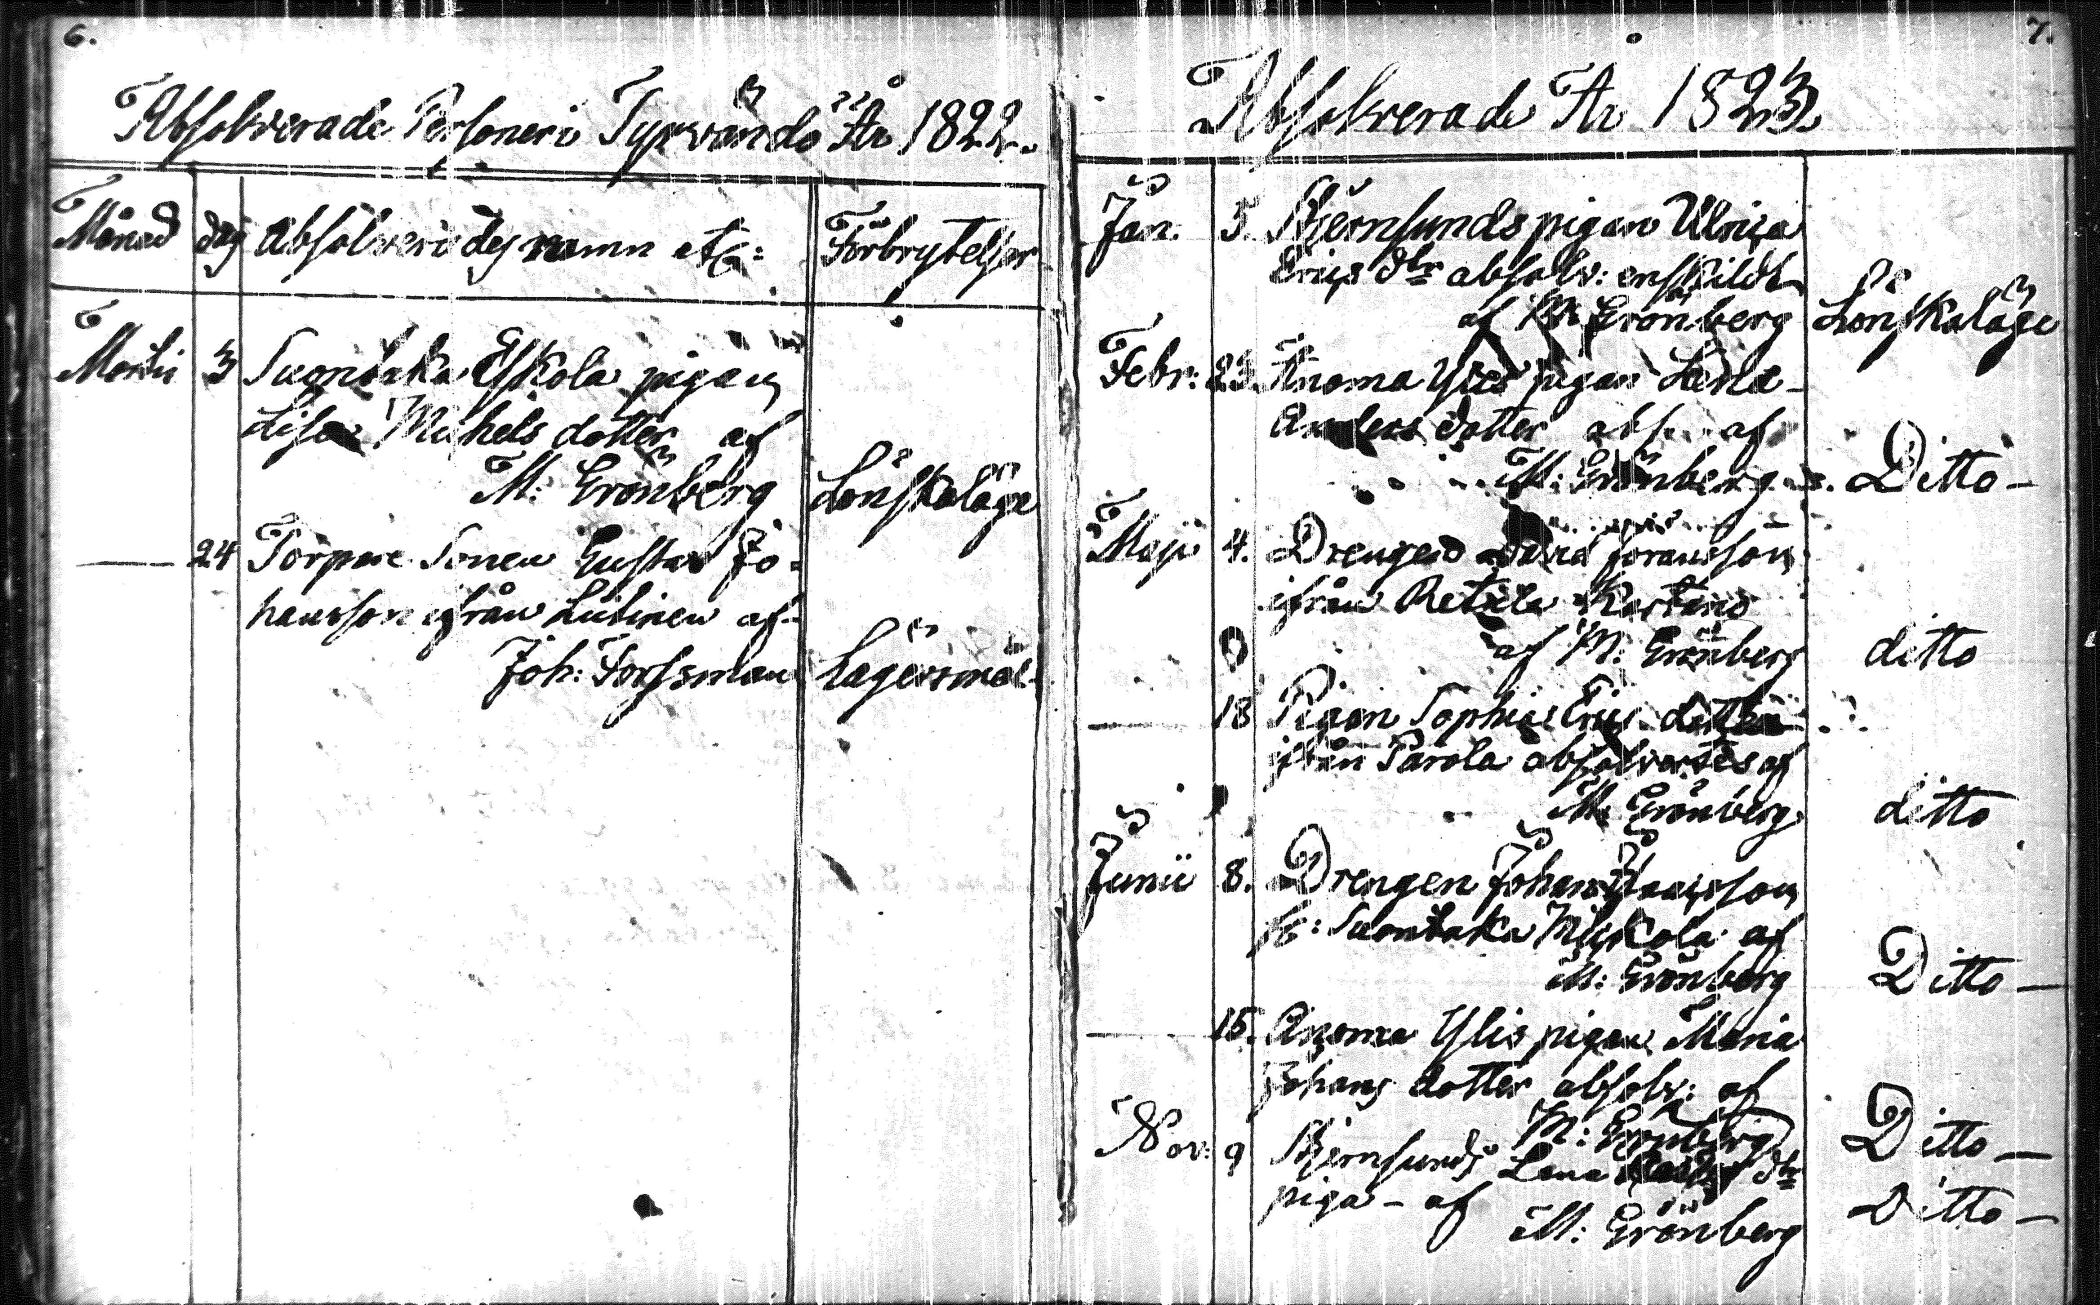 6.
Absolverade Personer i Tyrvändö År 1822.
Månad dag Absolverades namn etc: Förbrytelser
Martii 3 Suontaka Eskola pigan
Lisa Michels dotter af
M: Grönberg Lönskaläge
24 Torpare Sonen Gustaf Jo-
hansson ifrån Liitinen af
Joh: Forssman Lägersmål
7.
Absolverade År 1823.
Jan. 5. Bjernsunds pigan Ulrica
Erics dtr absolv: enskildt
af M: Grönberg Lönskaläge
Febr: 23. Anoma Ylis pigan Lena
Anders dotter abs. af
M: Grönberg Ditto
Maji 4. Drengen Johansson
ifrån Retula Kartano
af M: Grönberg ditto
18 Pigan Sophia Erics dotter
ifrån Parola absolverades af
M: Grönberg ditto
Junii 8. Drengen Johan Isacsson
fr: Suontaka Myckola af
M: Grönberg Ditto
15. Anoma Ylis pigan Maria
Johans dotter absolv: af
M: Grönberg Ditto
Nov: 9 Bjernsunds Lena dtr
piga - af
M: Grönberg Ditto